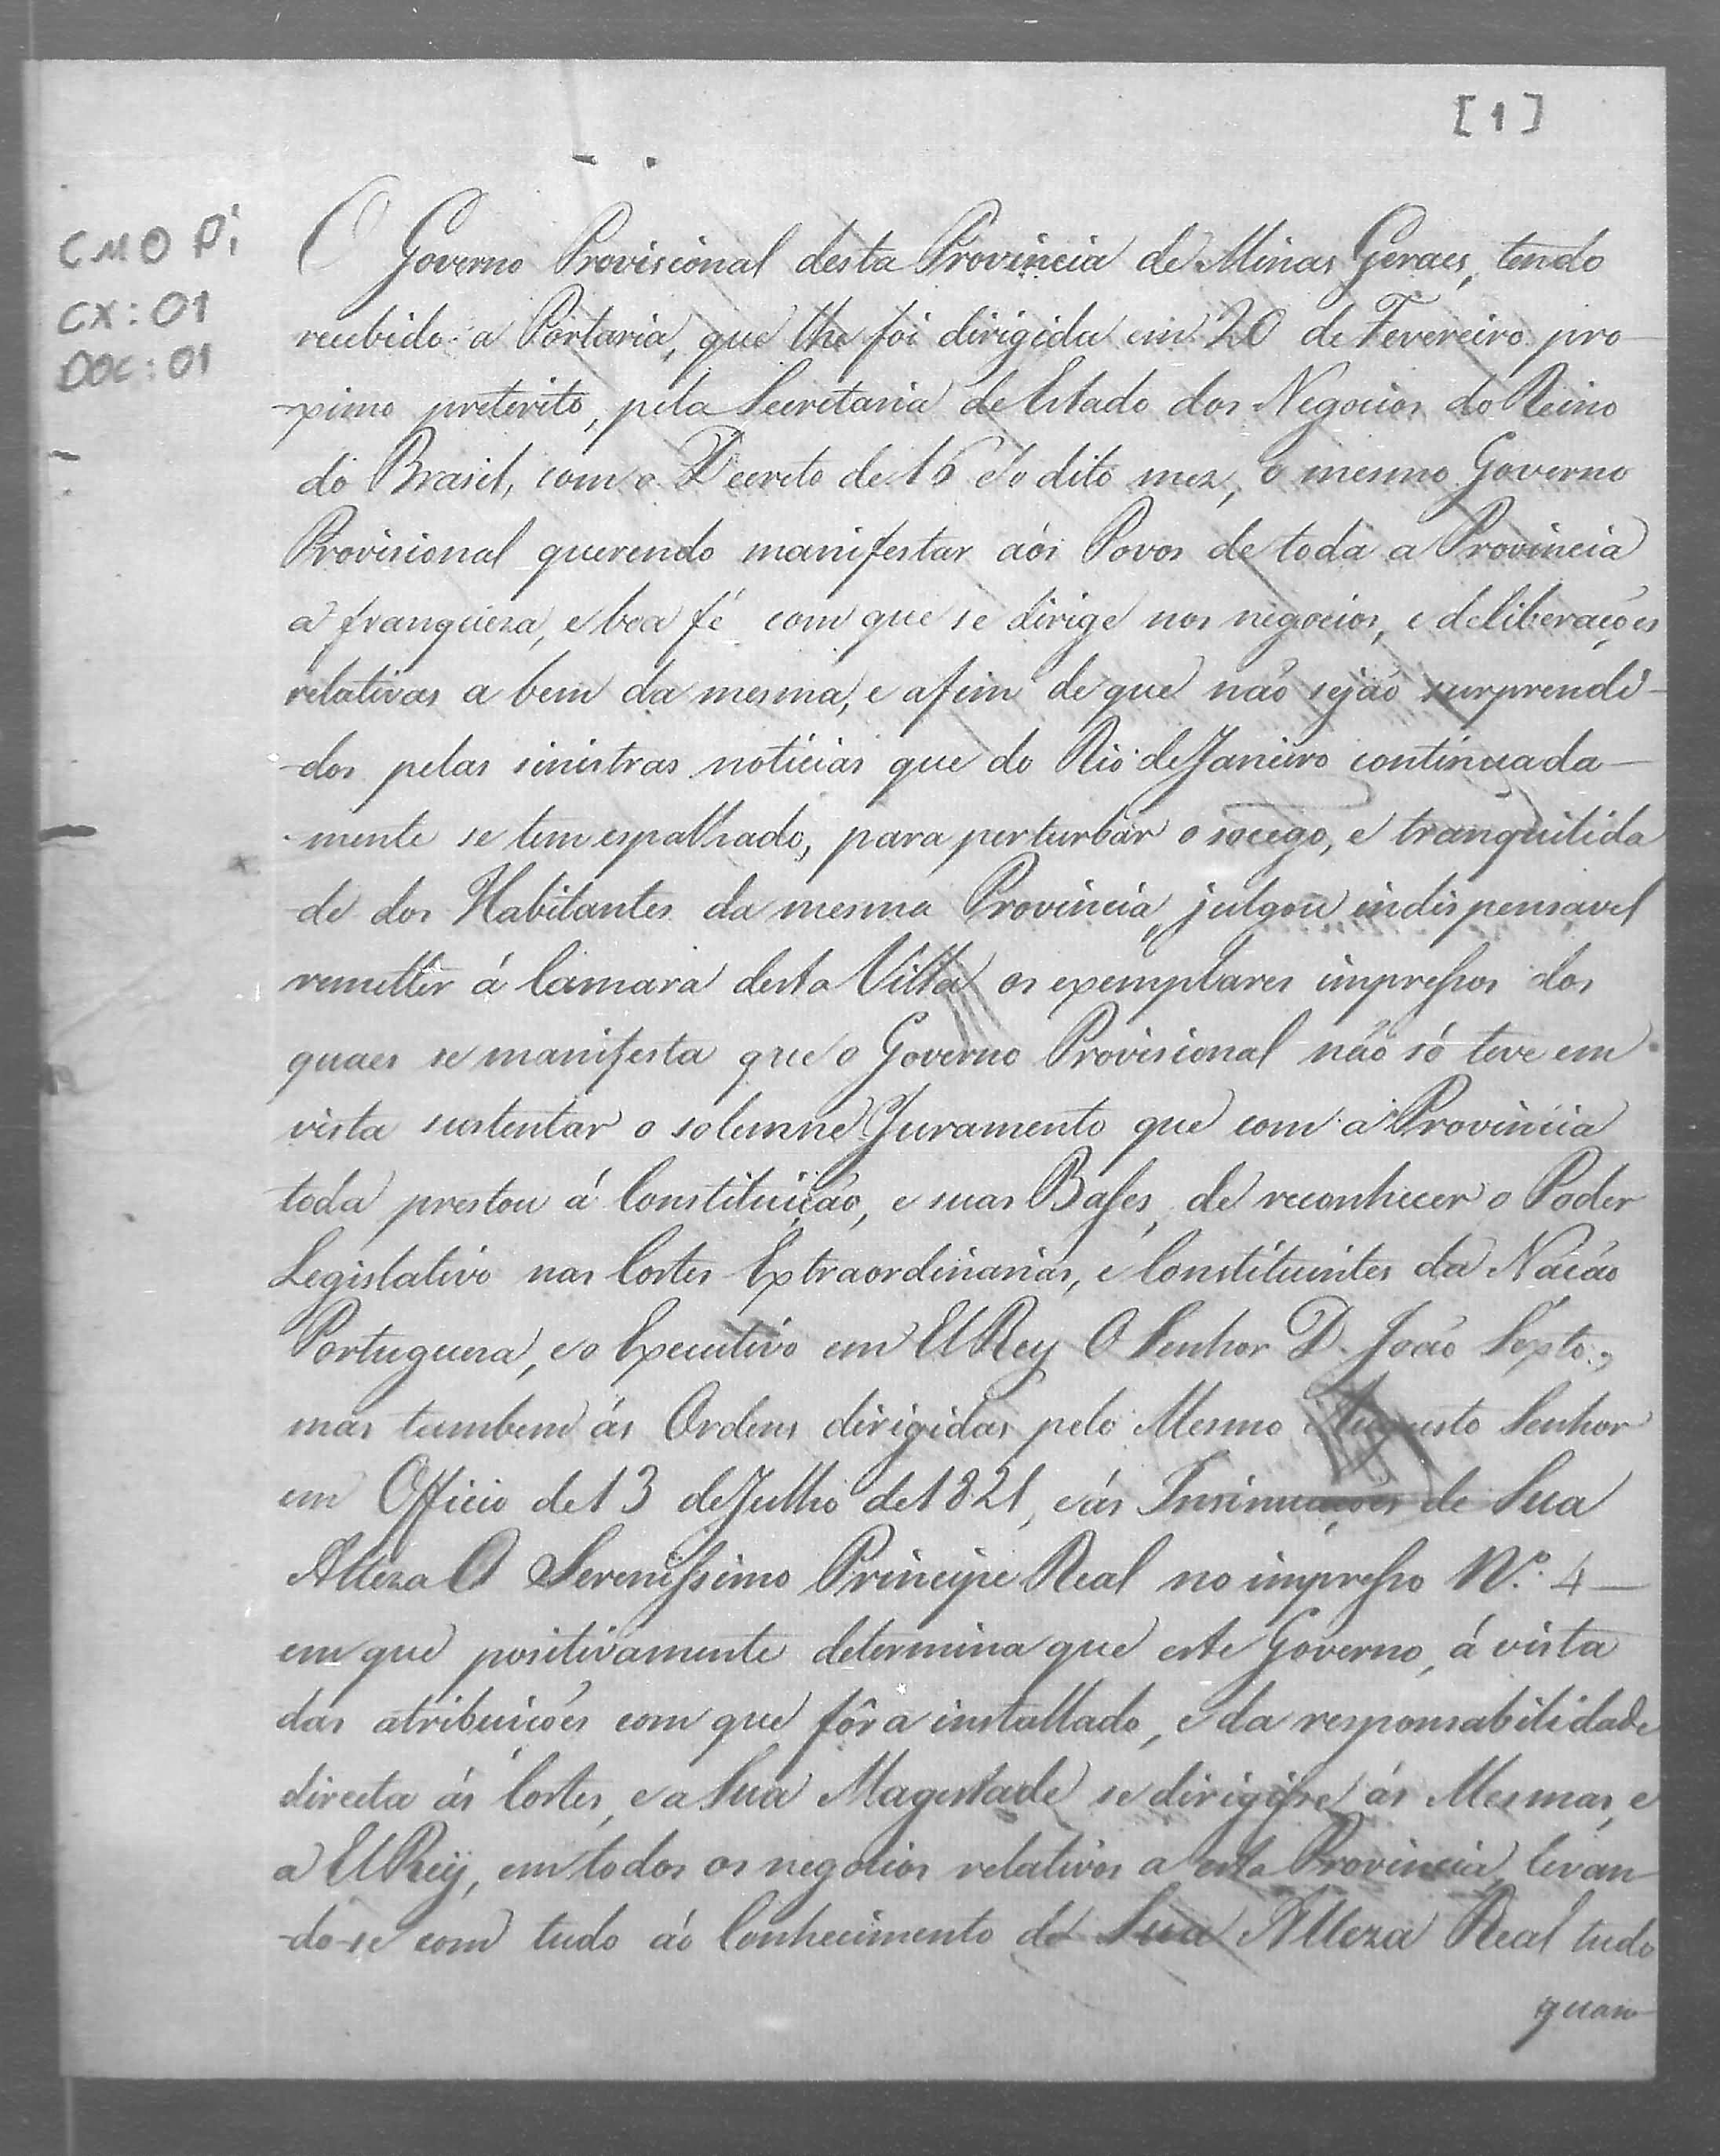 [1]
CMOPi
CX: 01
DOC: 01
O Governo Provisional desta Provincia de Minas Geraes, tendo
recebido a Portaria, que lhe foi dirigida em 20 de Fevereiro pro-
-ximo preterito, pela Secretaria de Estado dos Negocios do Reino
do Brasil, com o Decreto de 16 do dito mez, o mesmo Governo
Provisional querendo manifestar aós Povos de toda a Provincia
a franqueza, e boa fé com que se dirige nos negocios, e deliberações
relativas a bem da mesma, e afim de que não sejão surprendi-
-dos pelas sinistras noticias que do Rio de Janeiro continuada-
-mente se tem espalhado, para perturbar o socego, e tranquilida
-de dos Habitantes da mesma Provincia, julgou indispensavel
remetter á Camara desta Villa os exemplares impressos dos
quaes se manifesta que o Governo Provisional não só teve em
vista sustentar o solemne Juramento que com a Provincia
toda prestou á Constituição, e suas Bases, de reconhecer o Poder
Legislativo nas Cortes Extraordinarias, e Constituintes da Nação
Portugueza, e o Executivo em ElRey O Senhor D. João Sexto;
mas tambem ás Ordens dirigidas pelo Mesmo Augusto Senhor
em Officio de 13 de Julho de 1821, e ás Insinuações de Sua
Alteza O Serenissimo Principe Real no impresso N.º 4 —
em que positivamente determina que este Governo, á vista
das atribuições com que fôra installado, e da responsabilidade
directa ás Cortes, e a Sua Magestade se dirigisse ás Mesmas, e
a ElRey, em todos os negocios relativos a esta Provincia, levan-
-do-se com tudo aó Conhecimento de Sua Alteza Real tudo
quan-